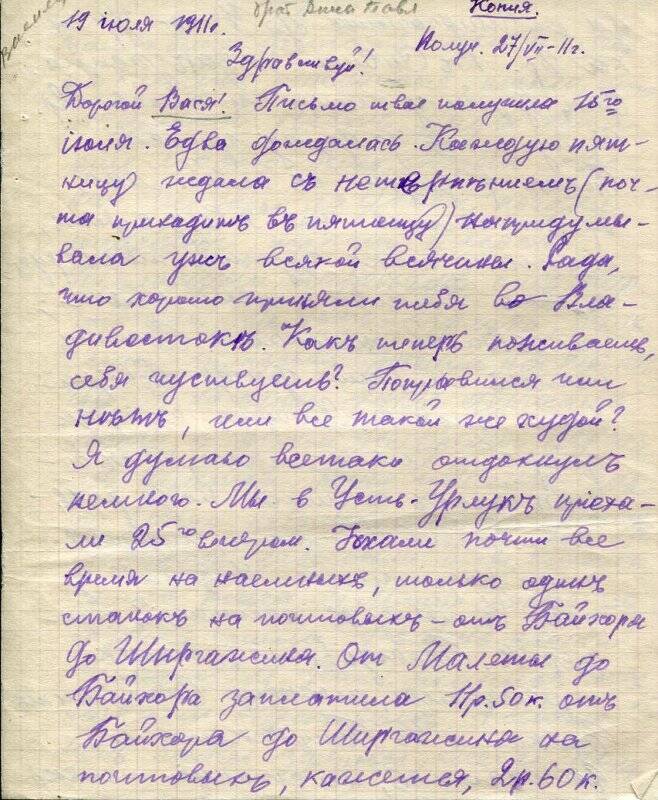 брат Дина Павл
Копия.
19 іюля 1911г.
Получ. 27/VII-11г.
Здравствуй!
Дорогой Вася! Письмо твое получила 15го
іюля. Едва дождалась. Каждую пят-
ницу ждала съ нетерпѣніемъ (поч-
та приходитъ въ пятницу) напридумы-
вала ужъ всякой всячины. Рада,
что хорошо приняли тебя во Вла-
дивостокѣ. Какъ теперь поживаешь,
себя чуствуешь? Поправился или
нѣтъ, или все такой же худой?
Я думаю всетаки отдохнулъ
немного. Мы в Усть-Урлукъ пріѣха-
ли 25го вечеромъ. Ѣхали почти все
время на наемныхъ, только одинъ
станокъ на почтовыхъ - отъ Байхора
до Ширгажина. От Малеты до
Байхора заплатила 11р. 50к. отъ
Байхора до Ширгажина на
почтовыхъ, кажется, 2р. 60к.